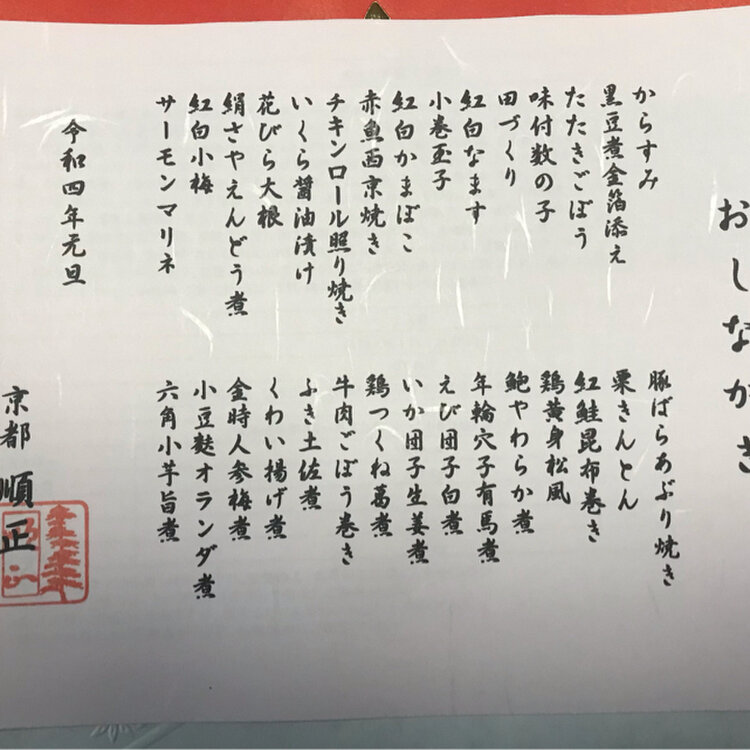 おしながき
からすみ
黒豆煮金箔添え
たたきごぼう
味付数の子
田づくり
紅白なます
小巻玉子
紅白かまぼこ
赤魚西京焼き
チキンロール照り焼き
いくら醤油漬け
花びら大根
絹さやえんどう煮
紅白小梅
サーモンマリネ
豚ばらあぶり焼き
栗きんとん
紅鮭昆布巻き
鶏黄身松風
鮑やわらか煮
年輪穴子有馬煮
えび団子白煮
いか団子生姜煮
鶏つくね葛煮
牛肉ごぼう巻き
ふき土佐煮
くわい揚げ煮
金時人参梅煮
小豆麩オランダ煮
六角小芋旨煮
令和四年元旦
京都 順正